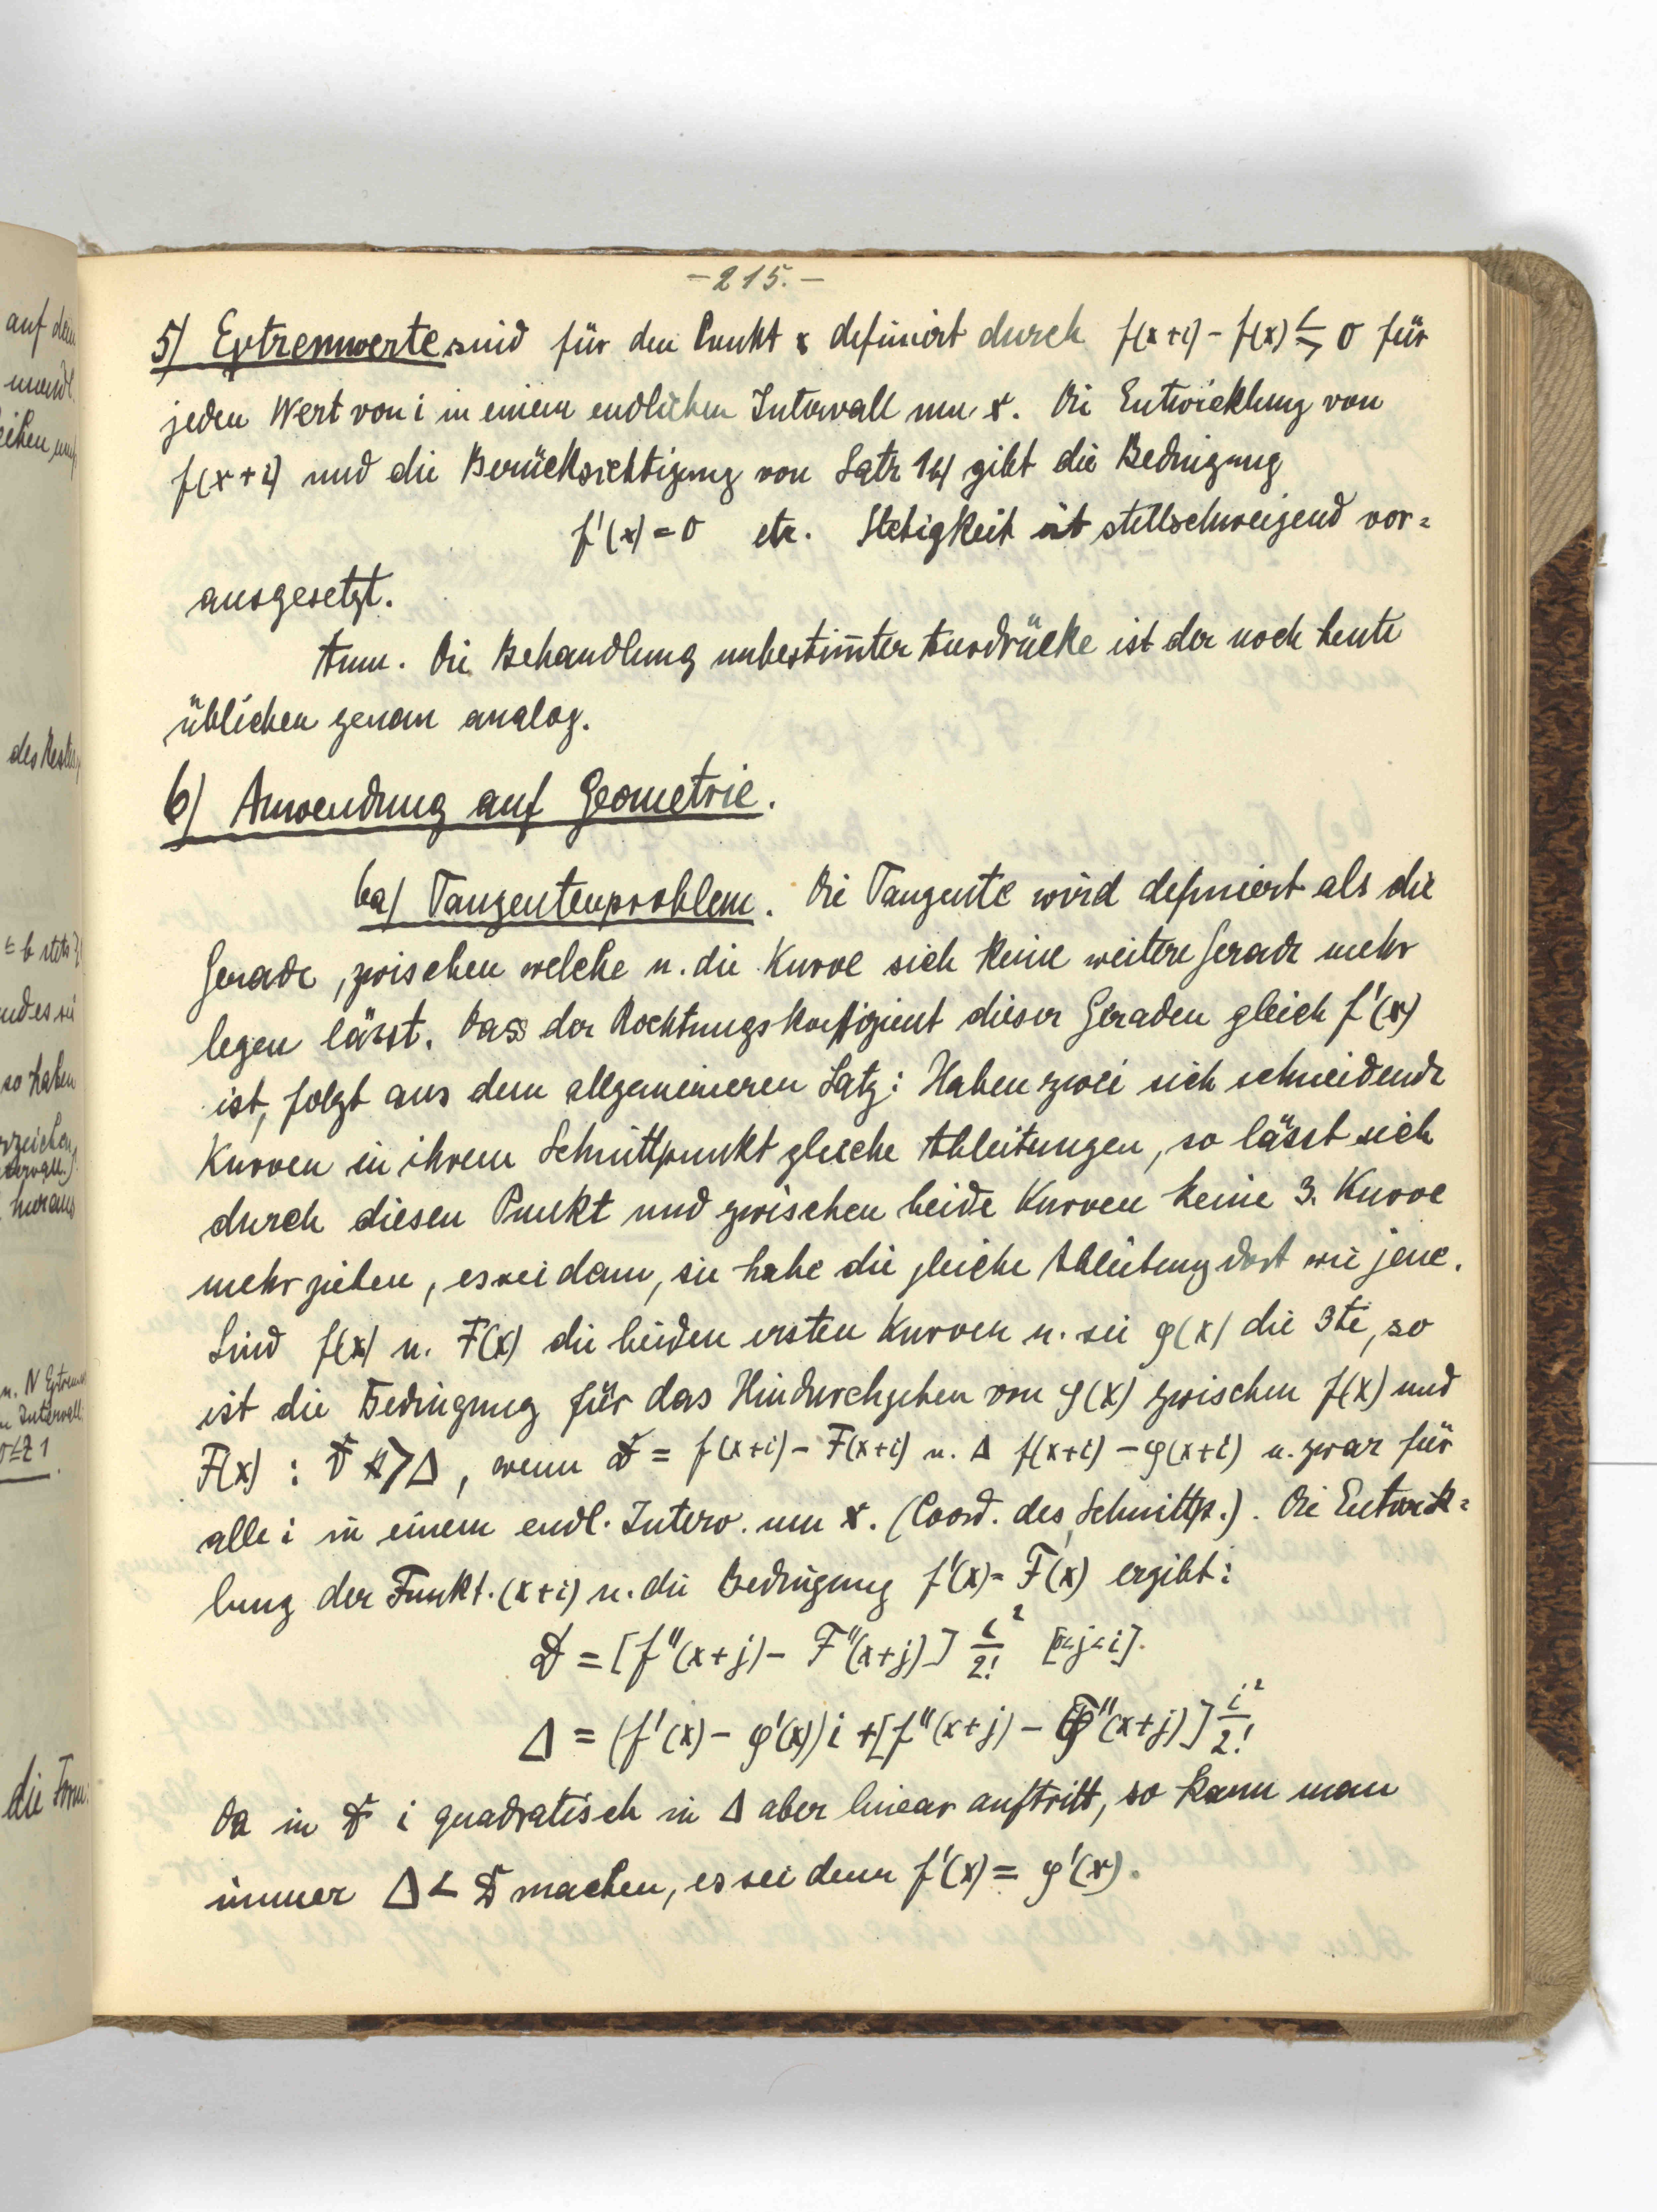 -215.-
5) Extremwerte sind für den Punkt x definiert durch f(x+i) - f(x) ≶ 0 für
jeden Wert von i in einem endlichen Intervall um x. Die Entwicklung von
f(x+i) und die Berücksichtigung von Satz 1b) gibt die Bedingung
f'(x) = 0 etc. Stetigkeit ist stillschweigend vor=
ausgesetzt.
Anm. Die Behandlung unbestim̄ter Ausdrücke ist der noch heute
üblichen genau analog.
6) Anwendung auf Geometrie.
6a) Tangentenproblem. Die Tangente wird definiert als die
Gerade, zwischen welche u. die Kurve sich keine weitere Gerade mehr
legen lässt. Dass der Richtungskoeffizient dieser Geraden gleich f'(x)
ist, folgt aus dem allgemeineren Satz: Haben zwei sich schneidende
Kurven in ihrem Schnittpunkt gleiche Ableitungen, so lässt sich
durch diesen Punkt und zwischen beide Kurven keine 3. Kurve
mehr ziehen, es sei denn, sie habe die gleiche Ableitung dort wie jene.
Sind f(x) u. F(x) die beiden ersten Kurven u. sei φ(x) die 3te, so
ist die Bedingung für das Hindurchgehen von φ(x) zwischen f(x) und
F(x) : D > Δ, wenn D = f(x+i) - F(x+i) u. Δ f(x+i) - φ(x+i) u. zwar für
alle i in einem endl. Interv. um x. (Coord. des Schnittp.). Die Entwick=
lung der Funkt. (x+i) u. die Bedingung f'(x) = F'(x) ergibt:
D = [f''(x+j) - F''(x+j)] i²/2! [0<j<i].
Δ = (f'(x) - φ'(x)) i + [f''(x+j) - φ''(x+j)] i²/2!
Da in D i quadratisch in Δ aber linear auftritt, so kann man
immer Δ < D machen, es sei denn f'(x) = φ'(x).
auf dem
des Restes
so haben
Intervall
die Form: